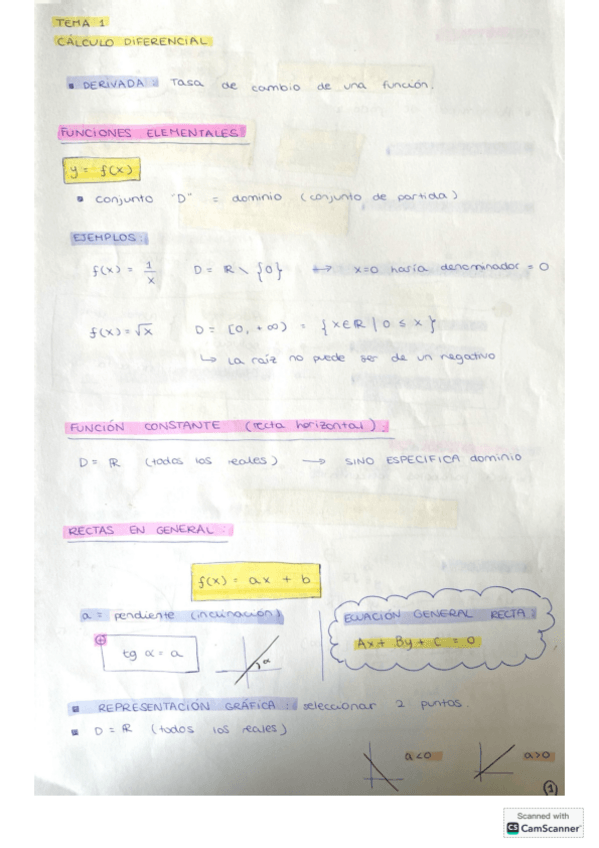 TEMA 1
CÁLCULO DIFERENCIAL
▪ DERIVADA: Tasa de cambio de una función.
FUNCIONES ELEMENTALES
y = f(x)
▪ conjunto "D" = dominio (conjunto de partida)
EJEMPLOS:
f(x) = 1/x D = ℝ \ {0} ↔ x=0 haría denominador = 0
f(x) = √x D = [0, +∞) = {x∈ℝ | 0 ≤ x}
↳ La raíz no puede ser de un negativo
FUNCIÓN CONSTANTE (recta horizontal).
D = ℝ (todos los reales) → SINO ESPECIFICA dominio
RECTAS EN GENERAL:
f(x) = ax + b
a = pendiente (inclinación)
ECUACIÓN GENERAL RECTA:
Ax + By + C = 0
+
tg α = a
α
▪ REPRESENTACIÓN GRÁFICA: seleccionar 2 puntos.
▪ D = ℝ (todos los reales)
a<0 a>0
1
Scanned with
CS CamScanner